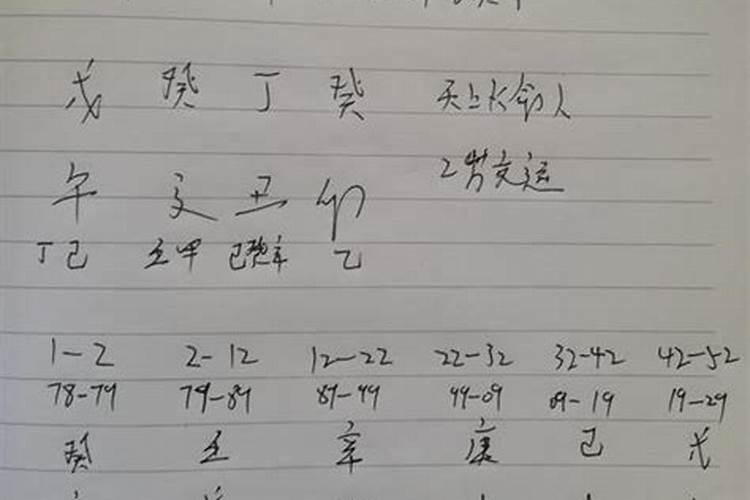 戊 癸 丁 癸 天上火命人
午 亥 丑 卯 2岁交运
丁己 壬甲 己癸辛 乙
1-2 2-12 12-22 22-32 32-42 42-52
78-79 79-89 89-99 99-09 09-19 19-29
癸 壬 辛 庚 己 戊